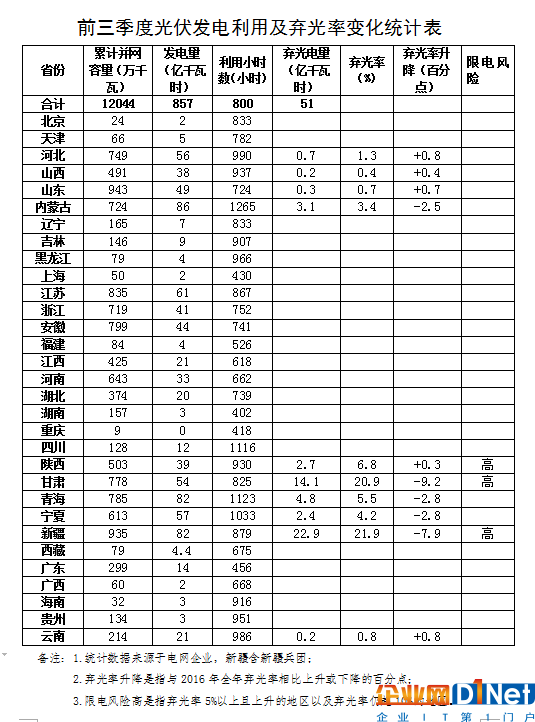 前三季度光伏发电利用及弃光率变化统计表
省份 累计并网容量（万千瓦） 发电量（亿千瓦时） 利用小时数（小时） 弃光电量（亿千瓦时） 弃光率（%） 弃光率升降（百分点） 限电风险
合计 12044 857 800 51
北京 24 2 833
天津 66 5 782
河北 749 56 990 0.7 1.3 +0.8
山西 491 38 937 0.2 0.4 +0.4
山东 943 49 724 0.3 0.7 +0.7
内蒙古 724 86 1265 3.1 3.4 -2.5
辽宁 165 7 833
吉林 146 9 907
黑龙江 79 4 966
上海 50 2 430
江苏 835 61 867
浙江 719 41 752
安徽 799 44 741
福建 84 4 526
江西 425 21 618
河南 643 33 662
湖北 374 20 739
湖南 157 3 402
重庆 9 0 418
四川 128 12 1116
陕西 503 39 930 2.7 6.8 +0.3 高
甘肃 778 54 825 14.1 20.9 -9.2 高
青海 785 82 1123 4.8 5.5 -2.8
宁夏 613 57 1033 2.4 4.2 -2.8
新疆 935 82 879 22.9 21.9 -7.9 高
西藏 79 4.4 675
广东 299 14 456
广西 60 2 668
海南 32 3 916
贵州 134 3 951
云南 214 21 986 0.2 0.8 +0.8
备注：1.统计数据来源于电网企业，新疆含新疆兵团；
2.弃光率升降是指与2016年全年弃光率相比上升或下降的百分点；
3.限电风险高是指弃光率5%以上且上升的地区以及弃光率仍
企业网D1Net
企业IT第1门户